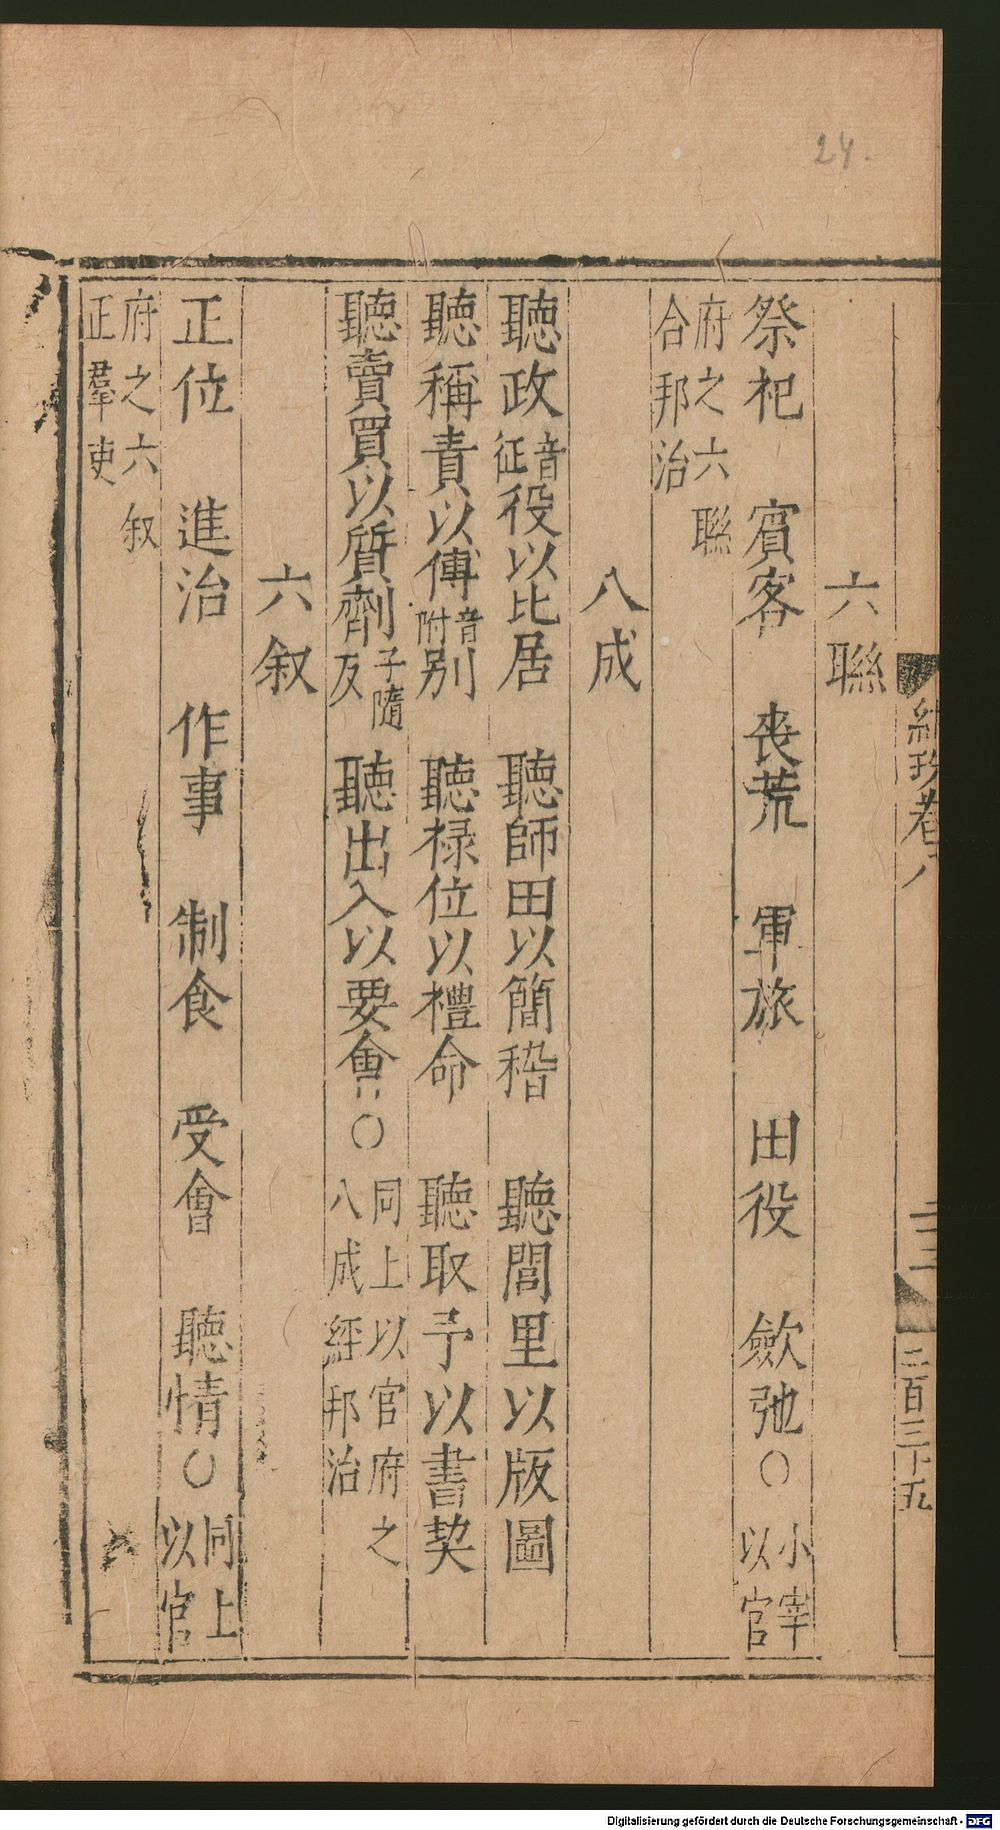 24.
六聯
祭祀 賓客 喪荒 軍旅 田役 歛弛〇小宰以官
府之六聯合邦治
八成
聽政音征役以比居 聽師田以簡稽 聽閭里以版圖
聽稱責以傅音附别 聽禄位以禮命 聽取予以書契
聽賣買以質劑子隨反 聽出入以要會〇同上以官府之八成經邦治
六叙
正位 進治 作事 制食 受會 聽情〇同上以官
府之六叙正羣吏
卷八
Digitalisierung gefördert durch die Deutsche Forschungsgemeinschaft - DFG